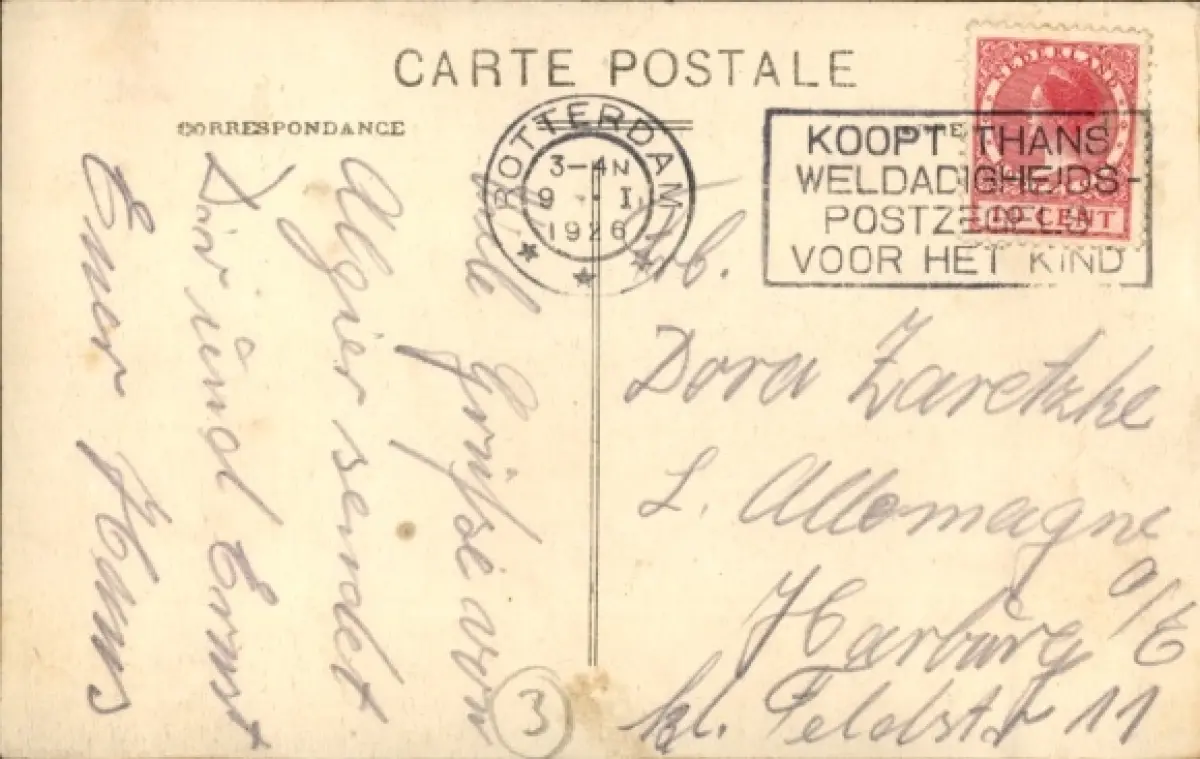 CARTE POSTALE
CORRESPONDANCE
ROTTERDAM
3-4N
9 I
1926
NEDERLAND
10 CENT
KOOPT THANS
WELDADIGHEIDS-
POSTZEGELS
VOOR HET KIND
Viel Grüße von
Algier sendet
Dir und Ernst
Euer Hans
Dora Zaretzke
L. Allemagne
Harburg a/E
kl. Feldstr 11
3